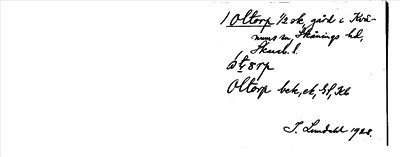 1 Oltorp 1/2 sk, gård i Kvä-
nums sn, Skånings hd,
Skarab. l.
Oltorp bek, ek, Gl, Kb
T. Lundahl 1928.